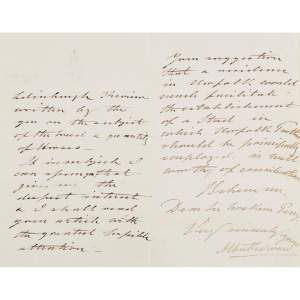 Edinburgh Review
written by the
you on the subject
of the breed & quantity
of Horses.
It is a subject I
can assure you that
gives me the
deepest interest
& I shall read
your article with
the greatest possible
attention.
Your suggestion
that a residence
in Norfolk would
much facilitate
the establishment
of a Stud in
which Norfolk
should be principally
employed, is well
worthy of consideration
Believe me,
Dear Sir
Very sincerely yours
Albert Edward